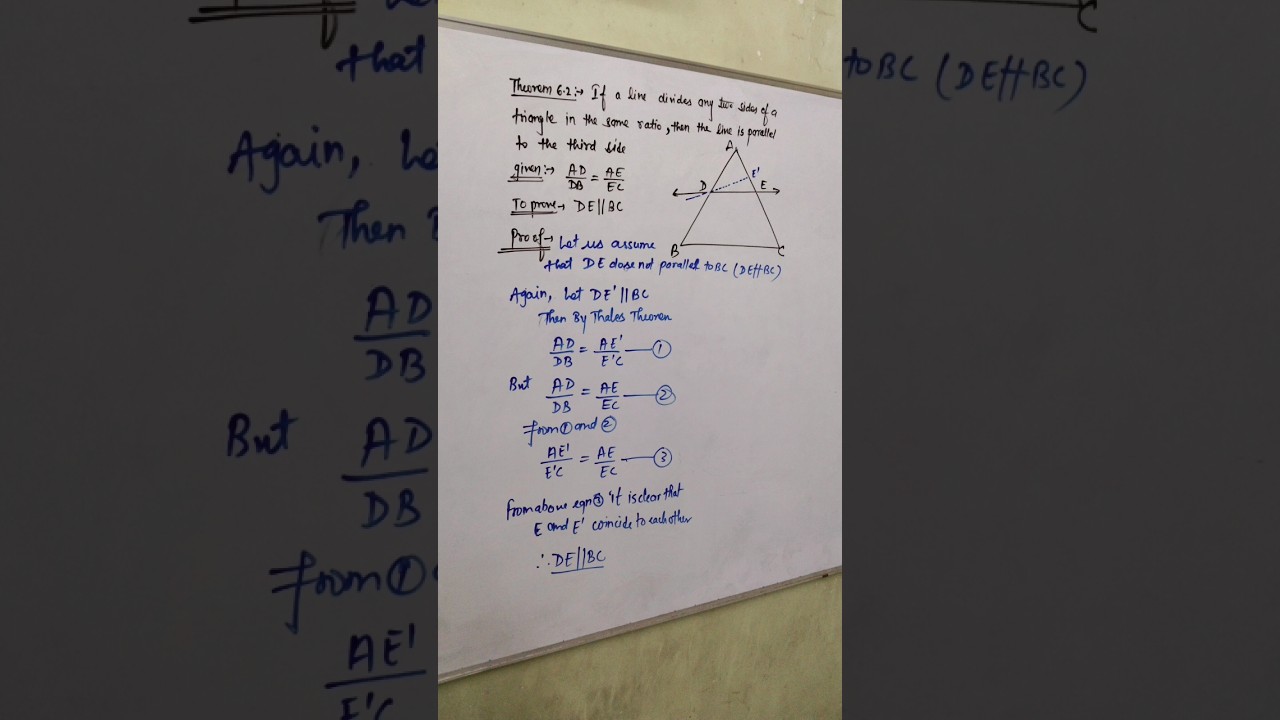 Theorem 6.2:→ If a line divides any two sides of a
triangle in the same ratio, then the line is parallel
to the third side
given:→ AD/DB = AE/EC
To prove→ DE||BC
A
E'
D
E
B
C
Proof→ Let us assume
that DE dose not parallel to BC (DE∦BC)
Again, Let DE'||BC
Then By Thales Theorem
AD/DB = AE'/E'C —①
But AD/DB = AE/EC —②
from ① and ②
AE'/E'C = AE/EC —③
from above eqn ③ it is clear that
E and E' coincide to each other
∴ DE||BC